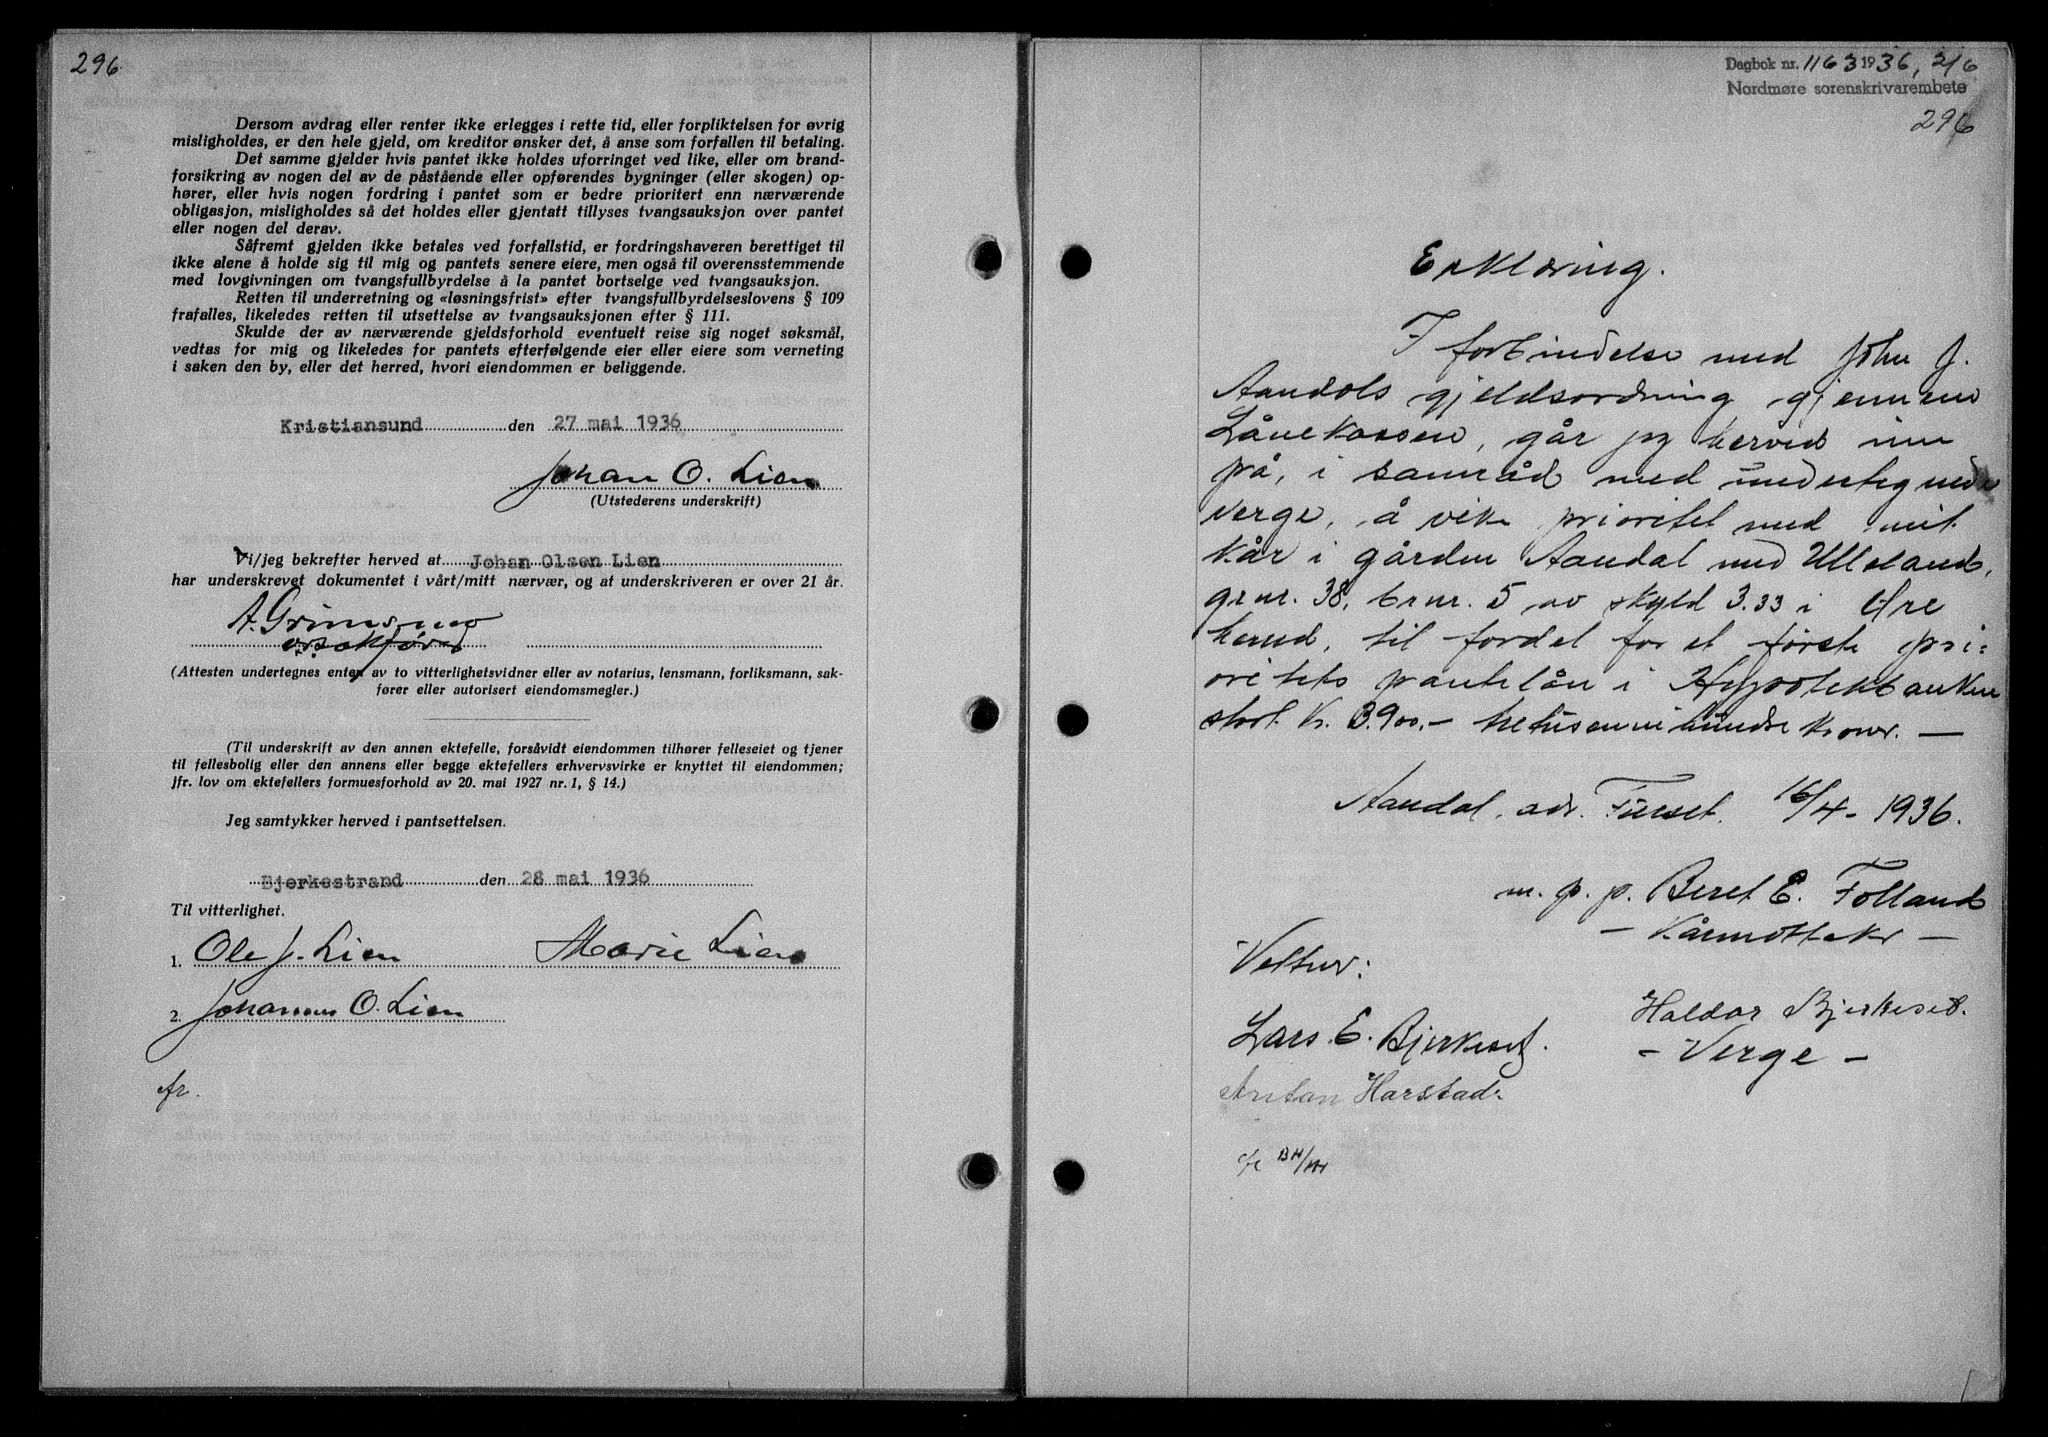 296
Dersom avdrag eller renter ikke erlegges i rette tid, eller forpliktelsen for øvrig
misligholdes, er den hele gjeld, om kreditor ønsker det, å anse som forfallen til betaling.
Det samme gjelder hvis pantet ikke holdes uforringet ved like, eller om brand-
forsikring av nogen del av de påstående eller opførendes bygninger (eller skogen) op-
hører, eller hvis nogen fordring i pantet som er bedre prioritert enn nærværende
obligasjon, misligholdes så det holdes eller gjentatt tillyses tvangsauksjon over pantet
eller nogen del derav.
Såfremt gjelden ikke betales ved forfallstid, er fordringshaveren berettiget til
ikke alene å holde sig til mig og pantets senere eiere, men også til overensstemmende
med lovgivningen om tvangsfullbyrdelse å la pantet bortselge ved tvangsauksjon.
Retten til underretning og «løsningsfrist» efter tvangsfullbyrdelseslovens § 109
frafalles, likeledes retten til utsettelse av tvangsauksjonen efter § 111.
Skulde der av nærværende gjeldsforhold eventuelt reise sig noget søksmål,
vedtas for mig og likeledes for pantets efterfølgende eier eller eiere som verneting
i saken den by, eller det herred, hvori eiendommen er beliggende.
Kristiansund den 27 mai 1936
Johan O. Lien
(Utstederens underskrift)
Vi/jeg bekrefter herved at Johan Olsen Lien
har underskrevet dokumentet i vårt/mitt nærvær, og at underskriveren er over 21 år.
A. Grimsmo
o.r.sakfører
(Attesten undertegnes enten av to vitterlighetsvidner eller av notarius, lensmann, forliksmann, sak-
fører eller autorisert eiendomsmegler.)
(Til underskrift av den annen ektefelle, forsåvidt eiendommen tilhører felleseiet og tjener
til fellesbolig eller den annens eller begge ektefellers erhvervsvirke er knyttet til eiendommen;
jfr. lov om ektefellers formuesforhold av 20. mai 1927 nr. 1, § 14.)
Jeg samtykker herved i pantsettelsen.
Bjerkestrand den 28 mai 1936
Til vitterlighet.
1. Ole J. Lien Marie Lien
2. Johannes O. Lien
Dagbok nr. 1163 1936, 2/6
Nordmøre sorenskrivarembete
296
Erklæring.
I forbindelse med John J.
Aandals gjeldsordning gjennem
Lånekassen, går jeg herved inn
på, i samråd med undertegnede
verge, å vike prioritet med mit
kår i gården Aandal med Ulleland,
grnr. 38, brnr. 5 av skyld 3.33 i Øre
herred, til fordel for et første pri-
oritets pantelån i Hypotekbanken
stort kr. 3.900,- tretusennihundre kroner. —
Aandal, adr. Furset, 16/4 - 1936.
m. p. p. Beret E. Folland
- Kårmottaker -
Vitner:
Haldor Bjerkeset.
Lars. E. Bjerkeset.
- Verge -
Anton Harstad.